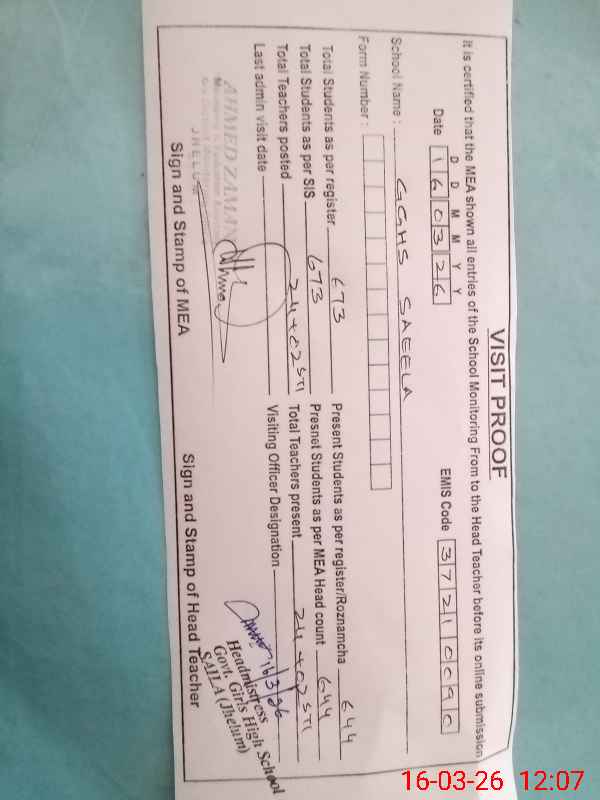 VISIT PROOF
It is certified that the MEA shown all entries of the School Monitoring From to the Head Teacher before its online submission
D D M M Y Y
Date 160326 EMIS Code 3721009
School Name : GGHS SAEELA
Form Number :
Total Students as per register 673 Present Students as per register/Roznamcha 644
Total Students as per SIS 673 Presnet Students as per MEA Head count 644
Total Teachers posted 24+02 STI Total Teachers present 24+02 STI
Last admin visit date Visiting Officer Designation
AHMED ZAMAN
JHELUM
16/3/26
Headmistress
Govt. Girls High School
SAILA (Jhelum)
Sign and Stamp of MEA Sign and Stamp of Head Teacher
16-03-26 12:07